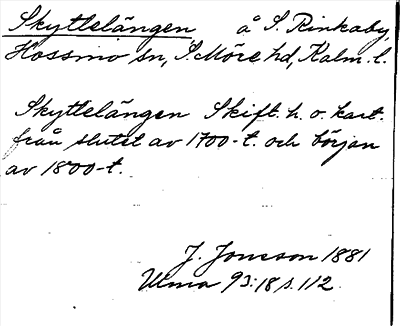 Skyttelängen å S. Rinkaby,
Hossmo sn, S. Möre hd, Kalm. l.
Skyttelängen Skift. h. o. kart.
från slutet av 1700-t. och början
av 1800-t.
J. Jonsson 1881
Ulma 93:18 s. 112